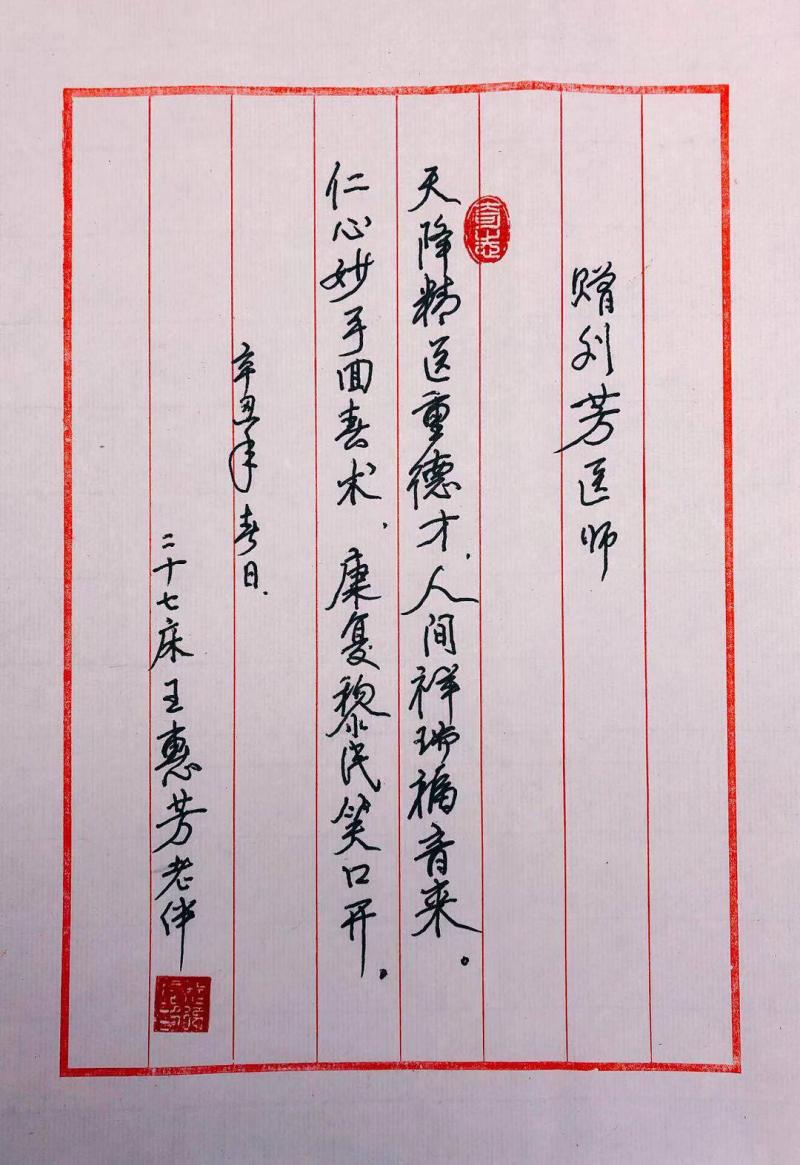 赠刘芳医师
天降精医重德才，人间祥瑞福音来。
仁心妙手回春术，康复黎民笑口开。
辛丑年春日.
二十七床王惠芳老伴